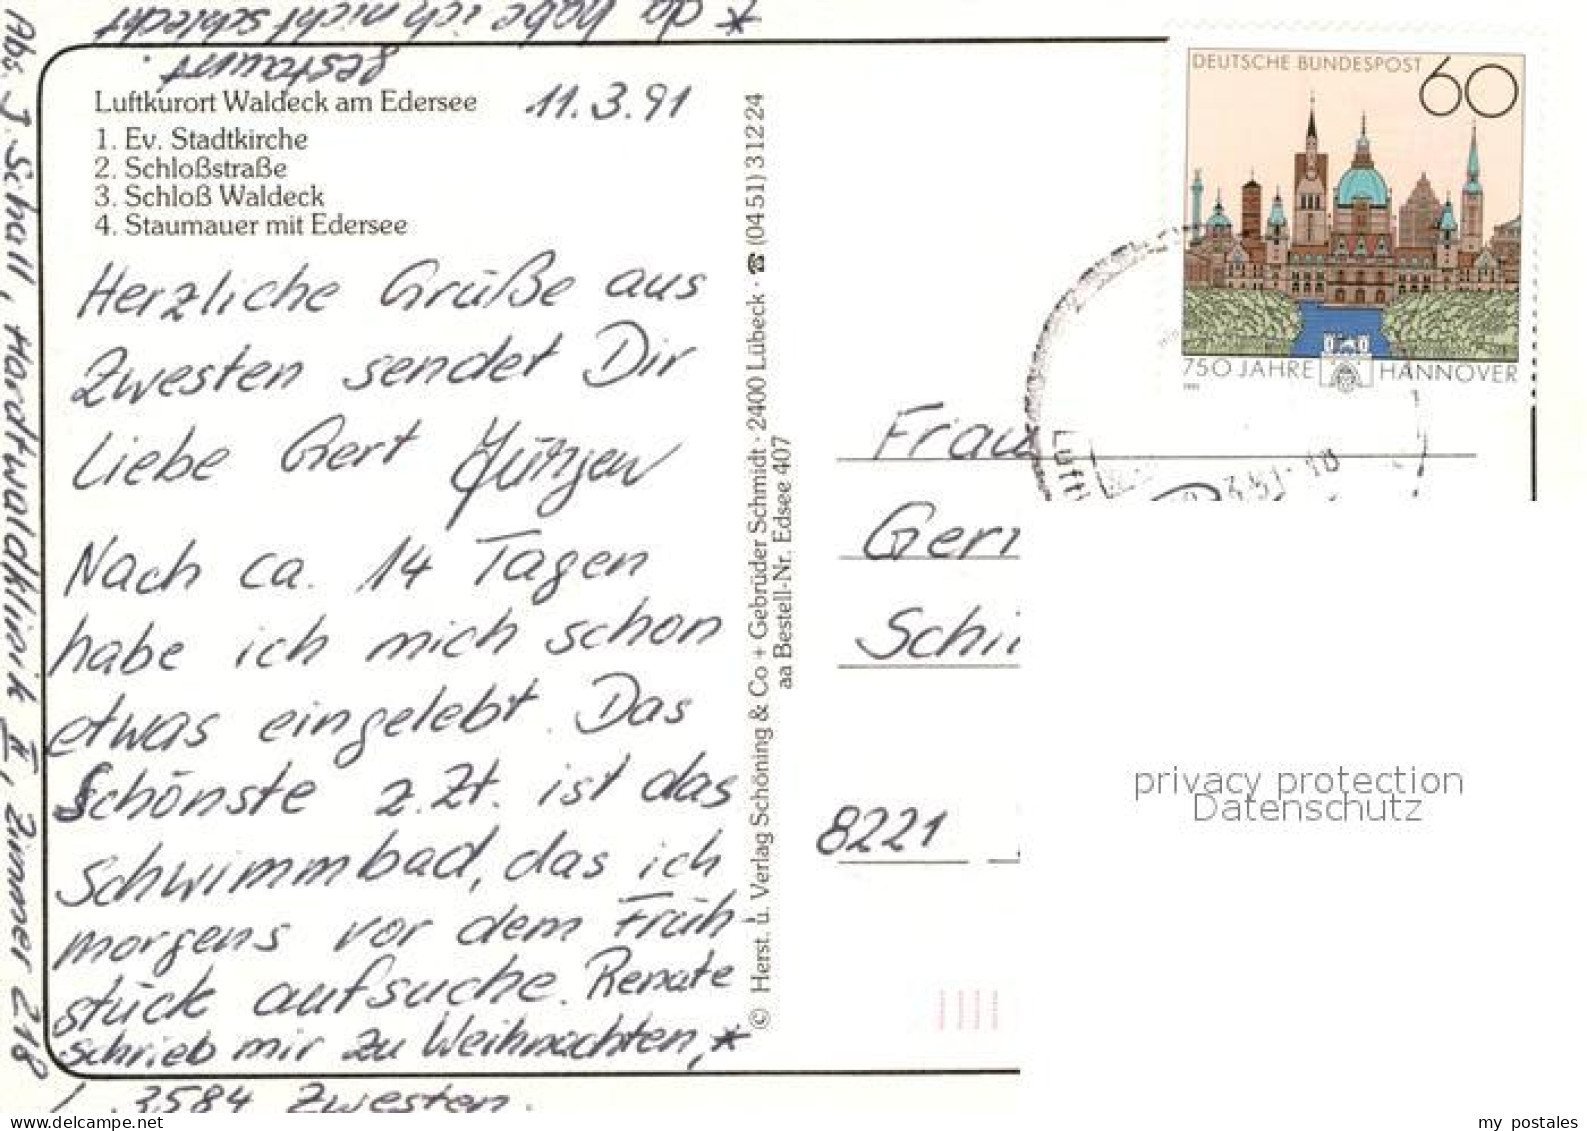 * da habe ich nicht schlecht
gestaunt.
Luftkurort Waldeck am Edersee
11.3.91
1. Ev. Stadtkirche
2. Schloßstraße
3. Schloß Waldeck
4. Staumauer mit Edersee
Herzliche Grüße aus
Zwesten sendet Dir
Liebe Gert Jürgen
Nach ca. 14 Tagen
habe ich mich schon
etwas eingelebt. Das
Schönste z.Zt. ist das
Schwimmbad, das ich
morgens vor dem Früh
stück aufsuche. Renate
schrieb mir zu Weihnachten, *
Abs. J. Schall, Hardtwaldklinik II, Zimmer 218
/ 3584 Zwesten.
© Herst. u. Verlag Schöning & Co + Gebrüder Schmidt · 2400 Lübeck · ☎ (0451) 31224
aa Bestell-Nr. Edsee 407
DEUTSCHE BUNDESPOST 60
750 JAHRE HANNOVER
1991
Luft
Frau
Ger
Schi
8221
privacy protection
Datenschutz
www.delcampe.net
my_postales